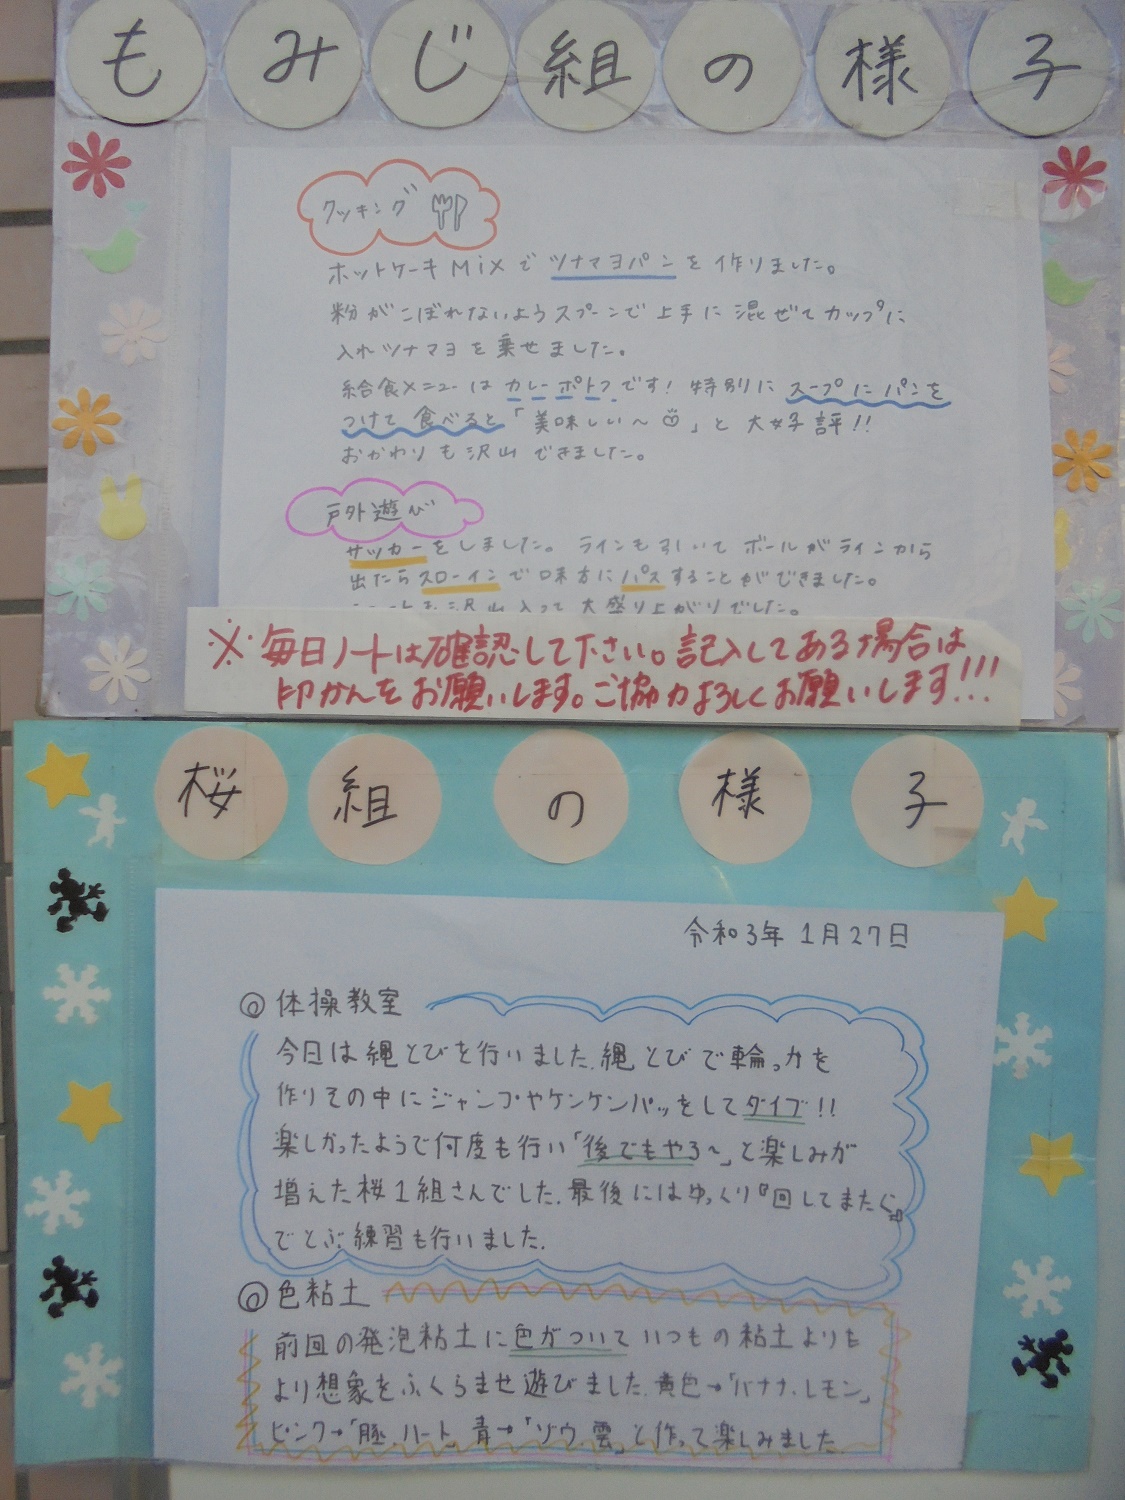 もみじ組の様子
クッキング
ホットケーキMiXでツナマヨパンを作りました。
粉がこぼれないようスプーンで上手に混ぜてカップに
入れツナマヨを乗せました。
給食メニューはカレーポトフです!特別にスープにパンを
つけて食べると「美味しい〜」と大好評!!
おかわりも沢山できました。
戸外遊び
サッカーをしました。ラインも引いてボールがラインから
出たらスローインで味方にパスすることができました。
沢山入って大盛り上がりでした。
※毎日ノートは確認して下さい。記入してある場合は
印かんをお願いします。ご協力よろしくお願いします!!!
桜組の様子
令和3年1月27日
◎体操教室
今日は縄とびを行いました.縄とびで輪っかを
作りその中にジャンプやケンケンパッをしてダイブ!!
楽しかったようで何度も行い「後でもやろ〜」と楽しみが
増えた桜1組さんでした.最後にはゆっくり『回してまたぐ』
でとぶ練習も行いました.
◎色粘土
前回の発泡粘土に色がついていつもの粘土よりも
より想象をふくらませ遊びました.黄色→「バナナ、レモン」
ピンク→「豚、ハート」青→「ゾウ、雲」と作って楽しみました.